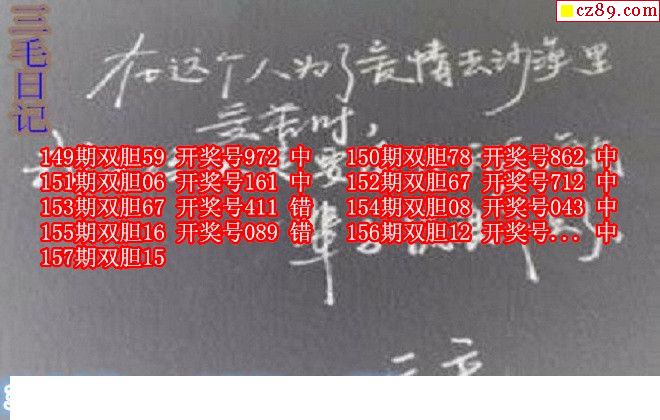 cz89.com
三毛日记
在这个人为了爱情去沙漠里
受苦时,
149期双胆59 开奖号972 中 150期双胆78 开奖号862 中
151期双胆06 开奖号161 中 152期双胆67 开奖号712 中
153期双胆67 开奖号411 错 154期双胆08 开奖号043 中
155期双胆16 开奖号089 错 156期双胆12 开奖号... 中
157期双胆15
三毛